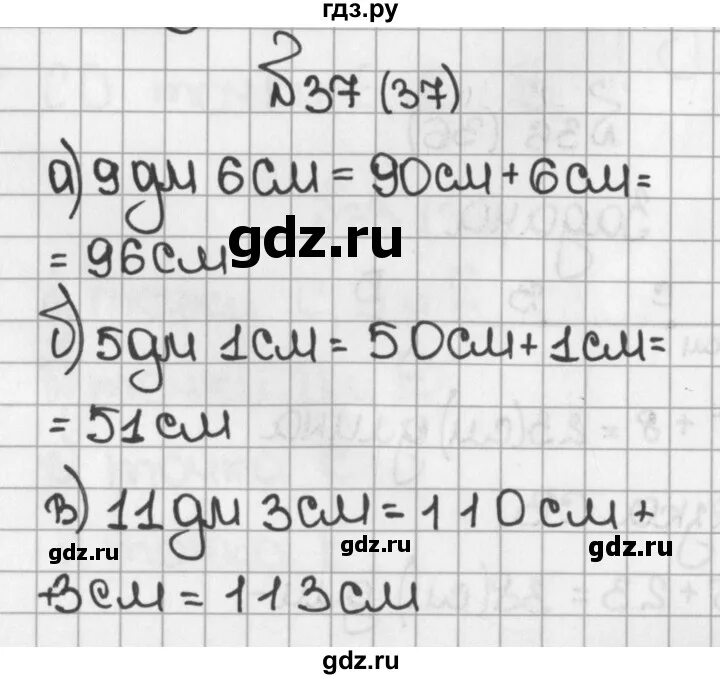 гдз.ру
№37 (37)
а) 9 дм 6 см = 90 см + 6 см =
gdz.ru
= 96 см
б) 5 дм 1 см = 50 см + 1 см =
= 51 см
в) 11 дм 3 см = 110 см +
gdz.ru gdz.ru gdz.ru
+3 см = 113 см
gdz.ru